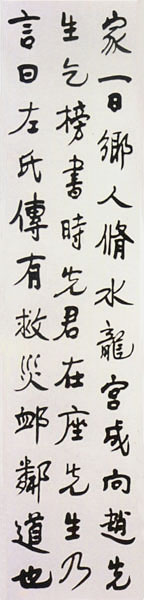 家一日鄉人脩水龍宮成向趙先
生乞榜書時先君在座先生乃
言曰左氏傳有救災卹鄰道也